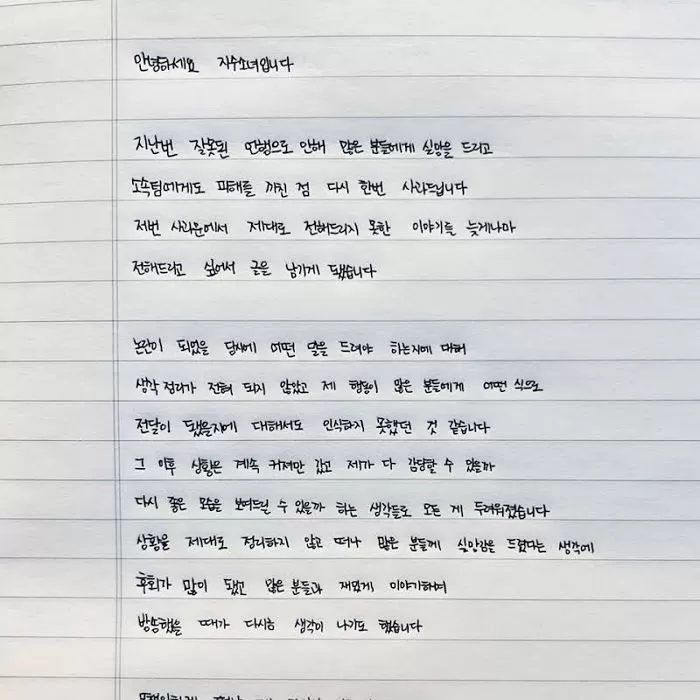 안녕하세요 자수소녀입니다
지난번 잘못된 언행으로 인해 많은 분들에게 실망을 드리고
소속팀에게도 피해를 끼친 점 다시 한번 사과드립니다
저번 사과문에서 제대로 전해드리지 못한 이야기를 늦게나마
전해드리고 싶어서 글을 남기게 됐습니다
논란이 되었을 당시에 어떤 말을 드려야 하는지에 대해
생각 정리가 전혀 되지 않았고 제 행동이 많은 분들에게 어떤 식으로
전달이 됐을지에 대해서도 인식하지 못했던 것 같습니다
그 이후 상황은 계속 커져만 갔고 제가 다 감당할 수 있을까
다시 좋은 모습을 보여드릴 수 있을까 하는 생각들로 모든 게 두려워졌습니다
상황을 제대로 정리하지 않고 떠나 많은 분들께 실망감을 드렸다는 생각에
후회가 많이 됐고 많은 분들과 재밌게 이야기하며
방송했을 때가 다시금 생각이 나기도 했습니다